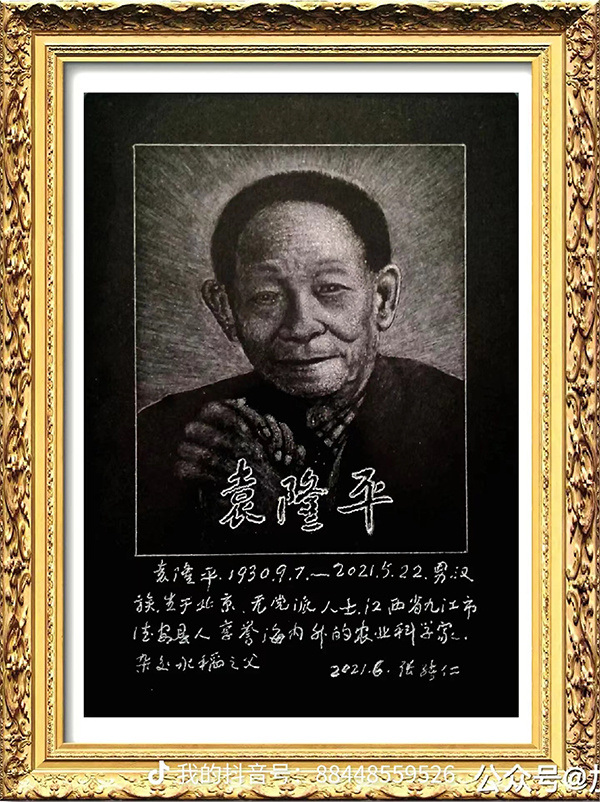 袁隆平
袁隆平.1930.9.7.—2021.5.22.男.汉
族.生于北京.无党派人士.江西省九江市
德安县人.享誉海内外的农业科学家.
杂交水稻之父
2021.6.张
仁
我的抖音号：88448559526
公众号@